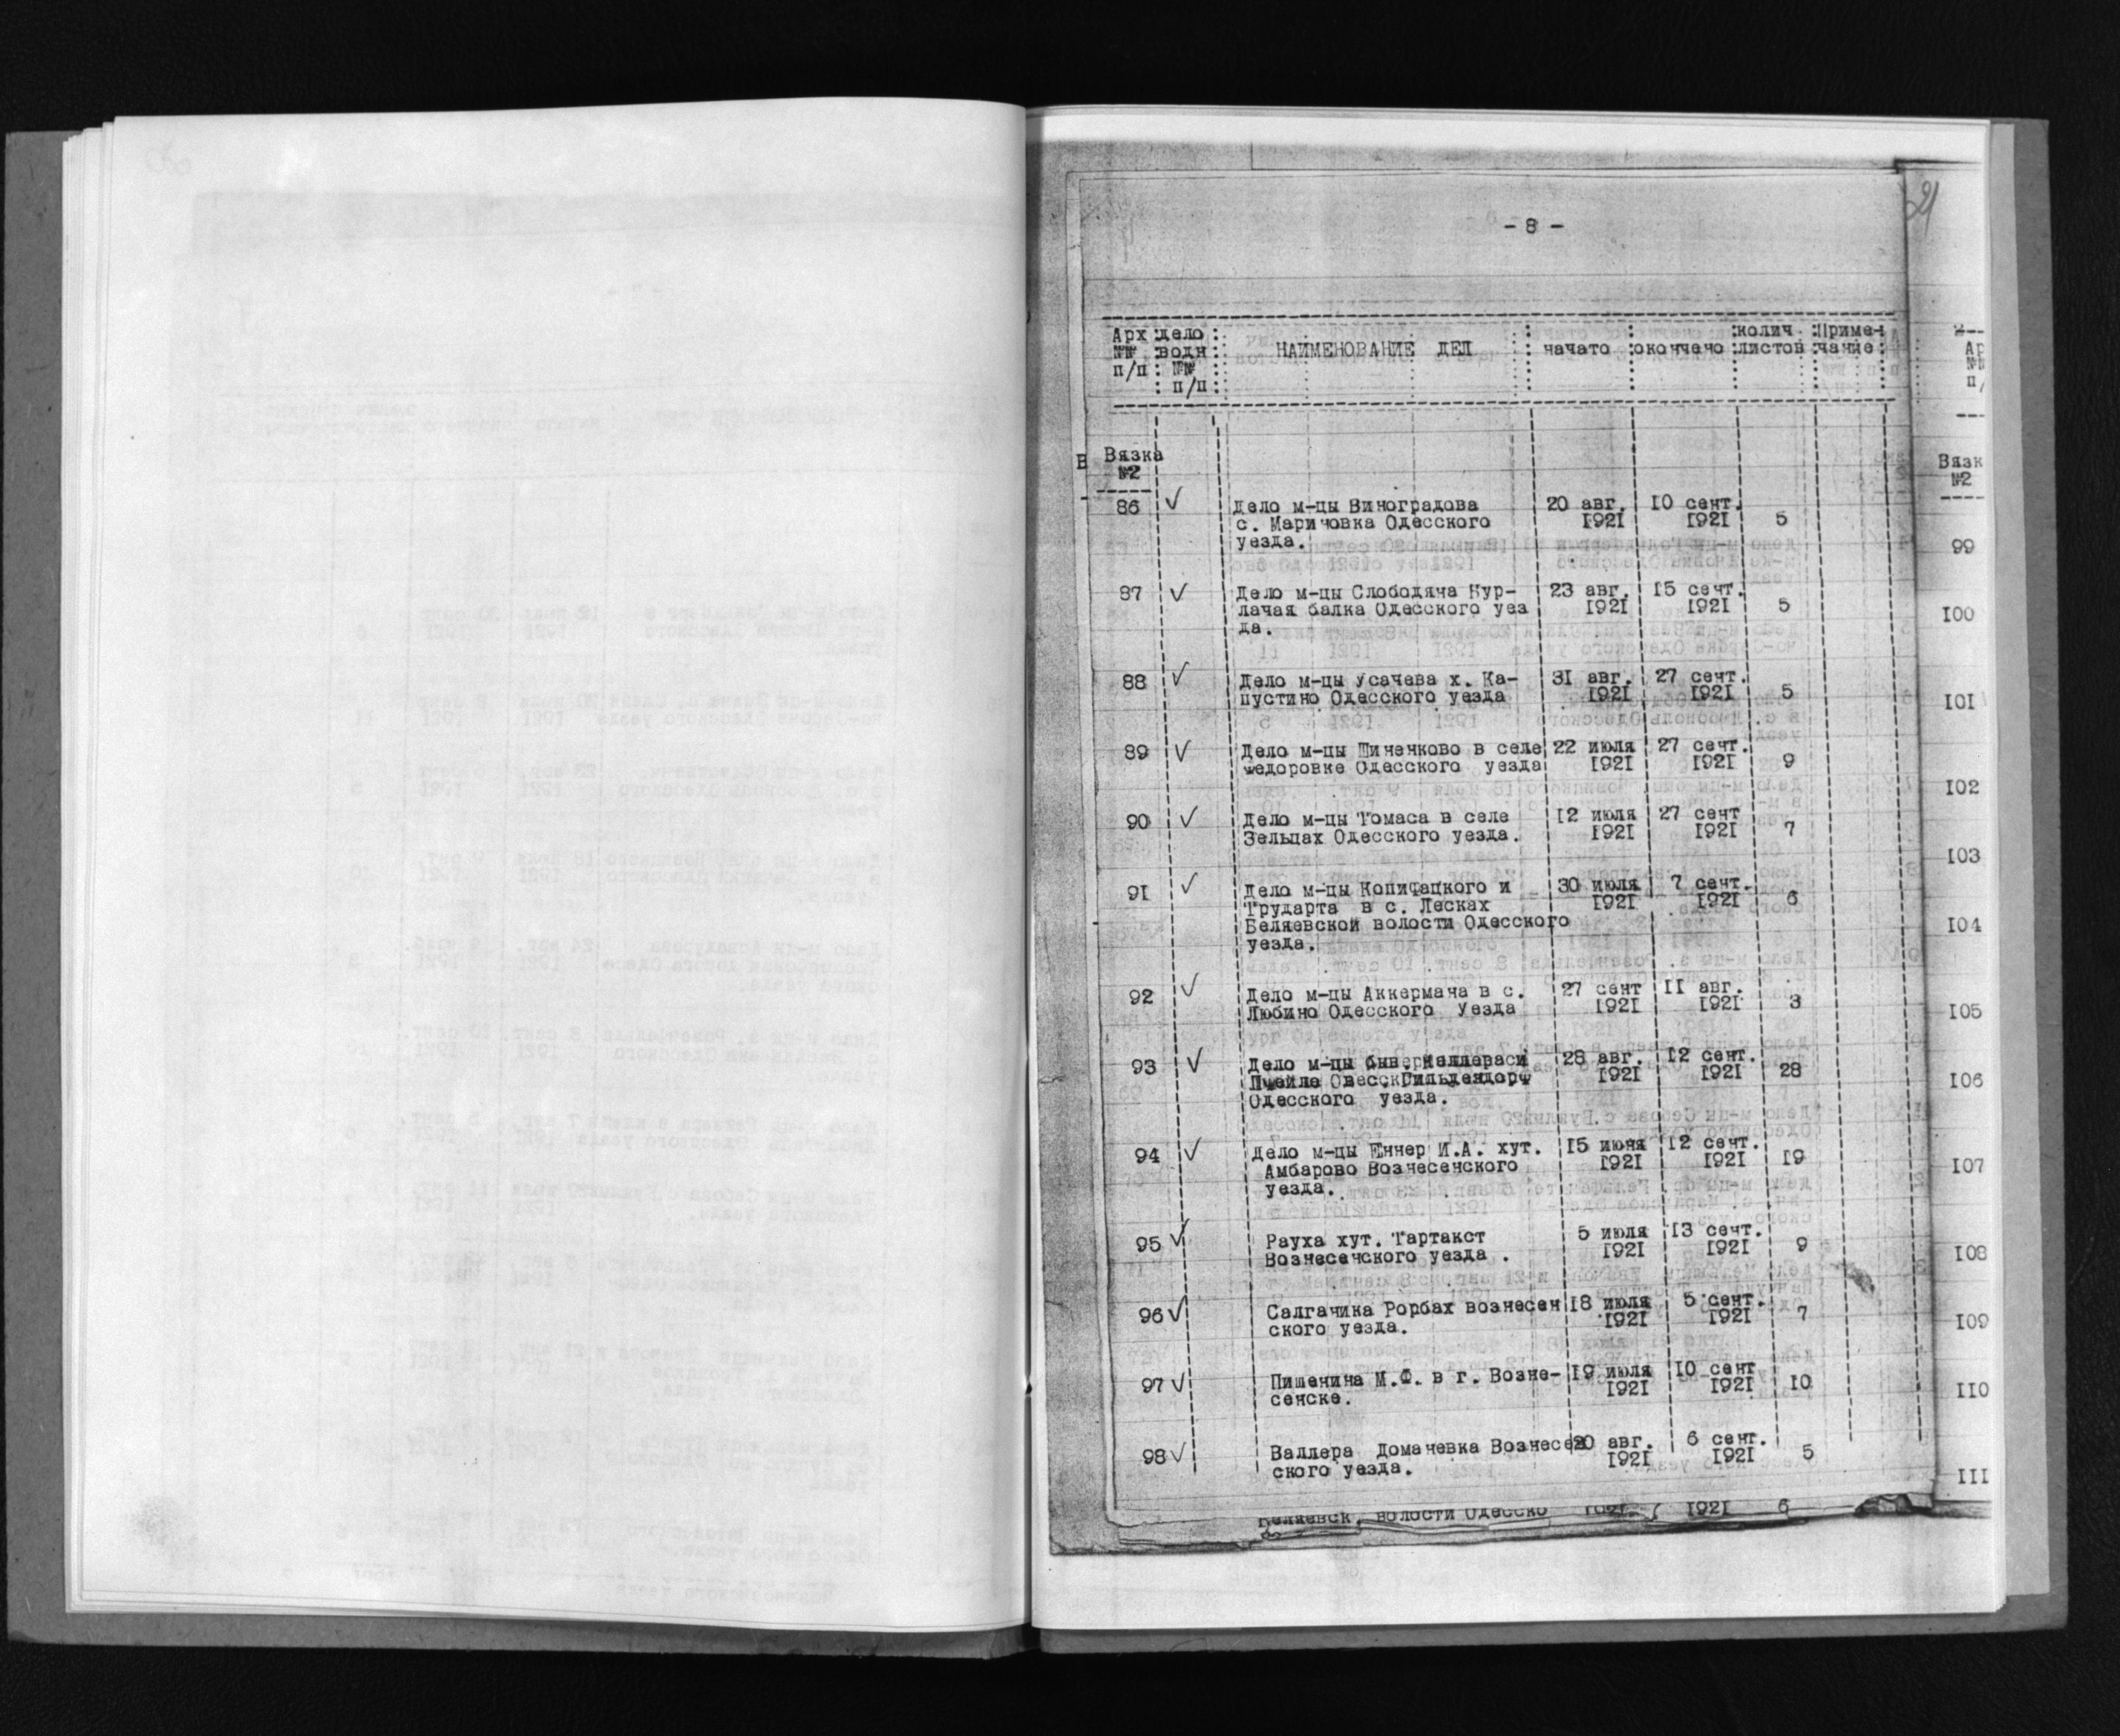 21
- 8 -
Арх дело колич. Приме-
№№ водн НАИМЕНОВАНИЕ ДЕЛ начато окончено листов чание
п/п №№
п/п
Вязка
№2
86 Дело м-цы Виноградова 20 авг. 10 сент.
с. Мариновка Одесского 1921 1921 5
уезда.
87 Дело м-цы Слободяна Кур- 23 авг. 15 сент.
лачая балка Одесского уез 1921 1921 5
да.
88 Дело м-цы Усачева х. Ка- 31 авг. 27 сент.
пустино Одесского уезда 1921 1921 5
89 Дело м-цы Шиненково в селе 22 июля 27 сент.
Федоровке Одесского уезда 1921 1921 9
90 Дело м-цы Томаса в селе 12 июля 27 сент
Зельцах Одесского уезда. 1921 1921 7
91 Дело м-цы Копифацкого и 30 июля 7 сент.
Трударта в с. Лесках 1921 1921 6
Беляевской волости Одесского
уезда.
92 Дело м-цы Аккермана в с. 27 сент 11 авг.
Любино Одесского Уезда 1921 1921 3
93 Дело м-цы 28 авг. 12 сент.
Гильдендорф 1921 1921 28
Одесского уезда.
94 Дело м-цы Еннер И.А. хут. 15 июня 12 сент.
Амбарово Вознесенского 1921 1921 19
уезда.
95 Рауха хут. Тартакст 5 июля 13 сент.
Вознесенского уезда . 1921 1921 9
96 Салганика Рорбах вознесен 18 июля 5 сент.
ского уезда. 1921 1921 7
97 Пишенина М.Ф. в г. Возне- 19 июля 10 сент
сенске. 1921 1921 10
98 Валлера Доманевка Вознесен 20 авг. 6 сент.
ского уезда. 1921 1921 5
Беляевск. волости Одесско 1921 1921 6
Вязк
№2
99
100
101
102
103
104
105
106
107
108
109
110
111